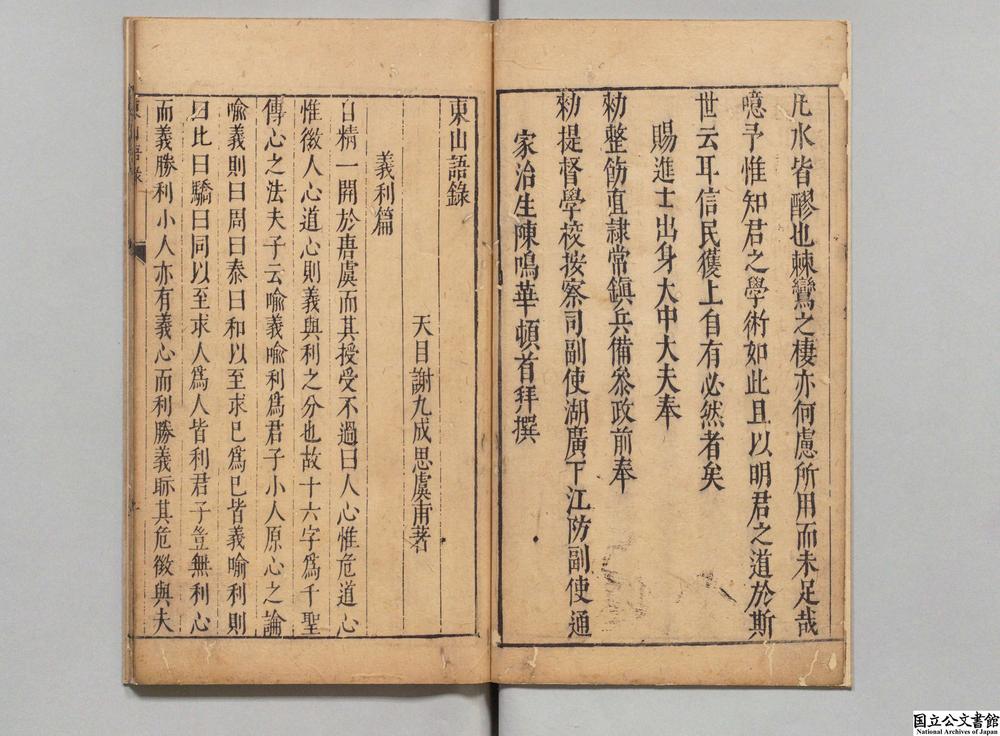 凡水皆醪也棘鸞之棲亦何慮所用而未足哉
噫予惟知君之學術如此且以明君之道於斯
世云耳信民獲上自有必然者矣
賜進士出身大中大夫奉
勑整飭直隸常鎮兵備叅政前奉
勑提督學校按察司副使湖廣下江防副使通
家治生陳鳴華頓首拜撰
東山語錄
天目謝九成思虞甫著
義利篇
自精一開於唐虞而其授受不過曰人心惟危道心
惟微人心道心則義與利之分也故十六字爲千聖
傳心之法夫子云喩義喩利爲君子小人原心之論
喩義則曰周曰泰曰和以至求已爲已皆義喩利則
曰比曰驕曰同以至求人爲人皆利君子豈無利心
而義勝利小人亦有義心而利勝義眎其危微與夫
東山語錄
国立公文書館
National Archives of Japan